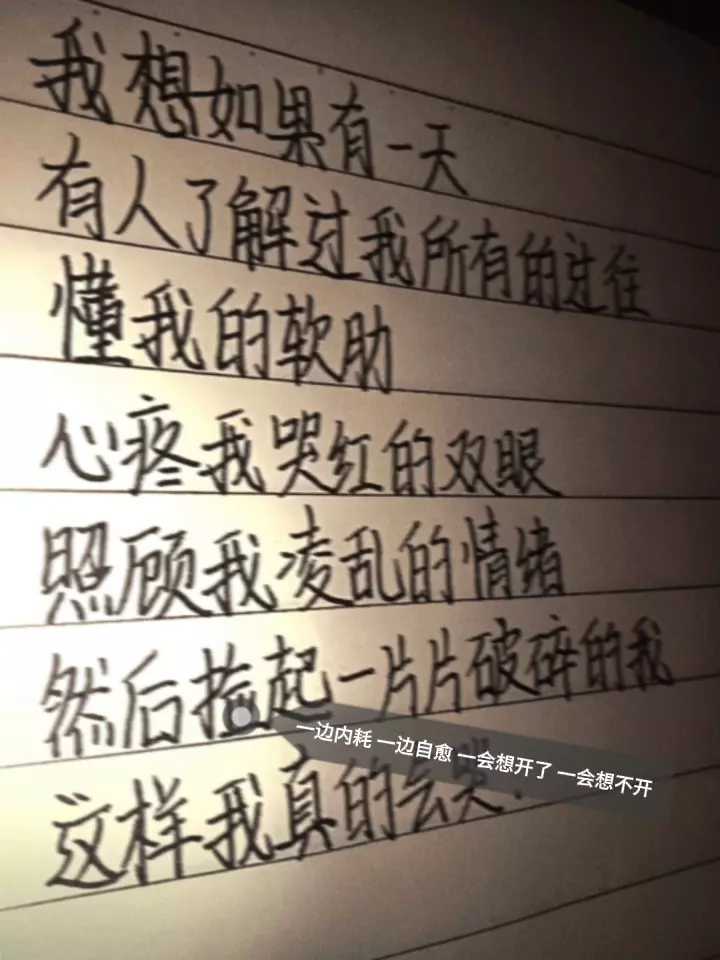 我想如果有一天
有人了解过我所有的过往
懂我的软助
心疼我哭红的双眼
照顾我凌乱的情绪
然后捡起一片片破碎的我
一边内耗 一边自愈 一会想开了 一会想不开
这样我真的会哭.